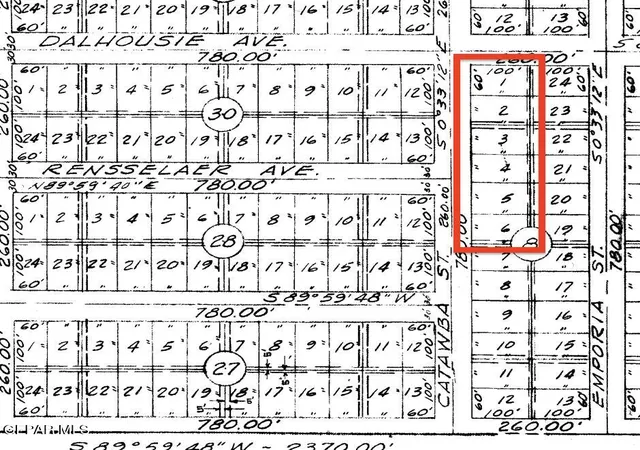 100' 24 23 22 21 20 19 18 17 16 15 14 13 100'
60' 12 13 60'
100' 100'
DALHOUSIE AVE.
780.00'
260.00'
30 30
60' 60'
1 2 3 4 5 6 7 8 9 10 11 12
260.00' 100' 30 100'
24 23 22 21 20 19 18 17 16 15 14 13
60' 60'
RENSSELAER AVE.
N 89°59'40" E 780.00'
30 30
60' 60'
1 2 3 4 5 6 7 8 9 10 11 12
260.00' 100' 28 100'
24 23 22 21 20 19 18 17 16 15 14 13
60' 60'
S 89°59'48" W
780.00'
60' 60'
1 2 3 4 5 6 7 8 9 10 11 12
260.00' 100' 27 5' 5' 100'
24 23 22 21 20 19 18 17 16 15 14 13
60' 5' 5' 60'
780.00'
S 89°59'48" W - 2370.00'
S 0°33'12" E
260.00'
CATAWBA ST.
780.00'
100' 100'
60' 24 60'
2 23
3 22
4 21
5 20
6 19
7 18
8 17
9 16
10 15
11 14
60' 12 13 60'
100' 100'
260.00'
S 0°33'12" E
EMPORIA ST.
780.00'
60'
100'
S
60'